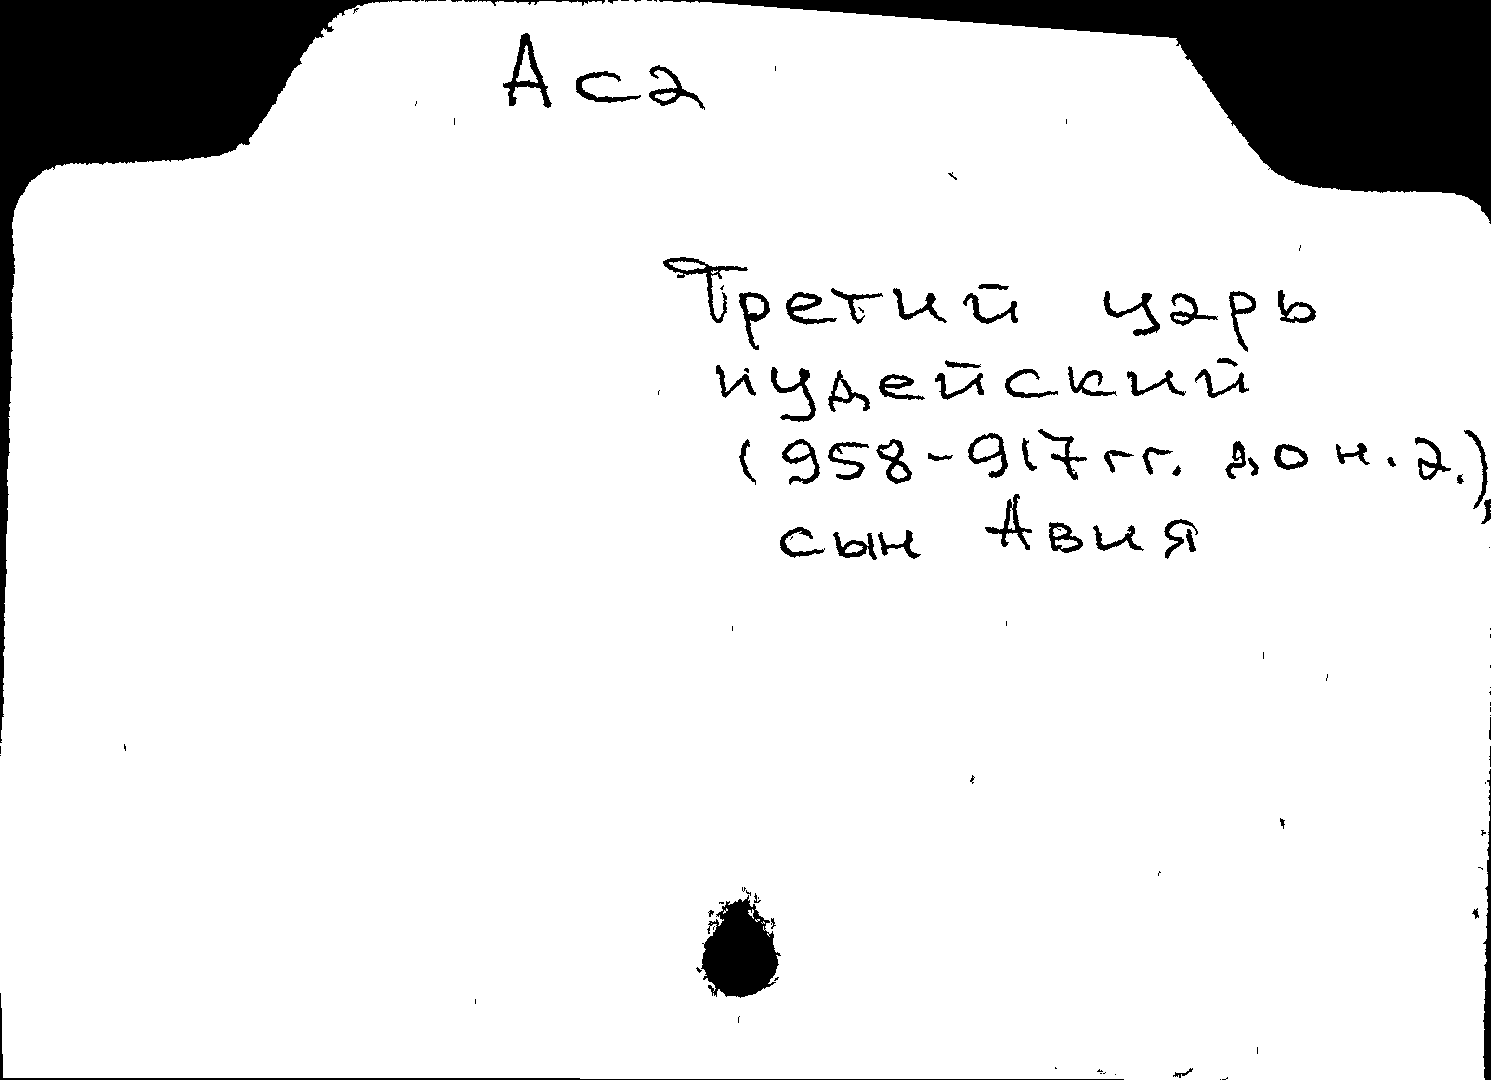 Аса
Третий царь
иудейский
(958-917 гг. до н.э.),
сын Авия